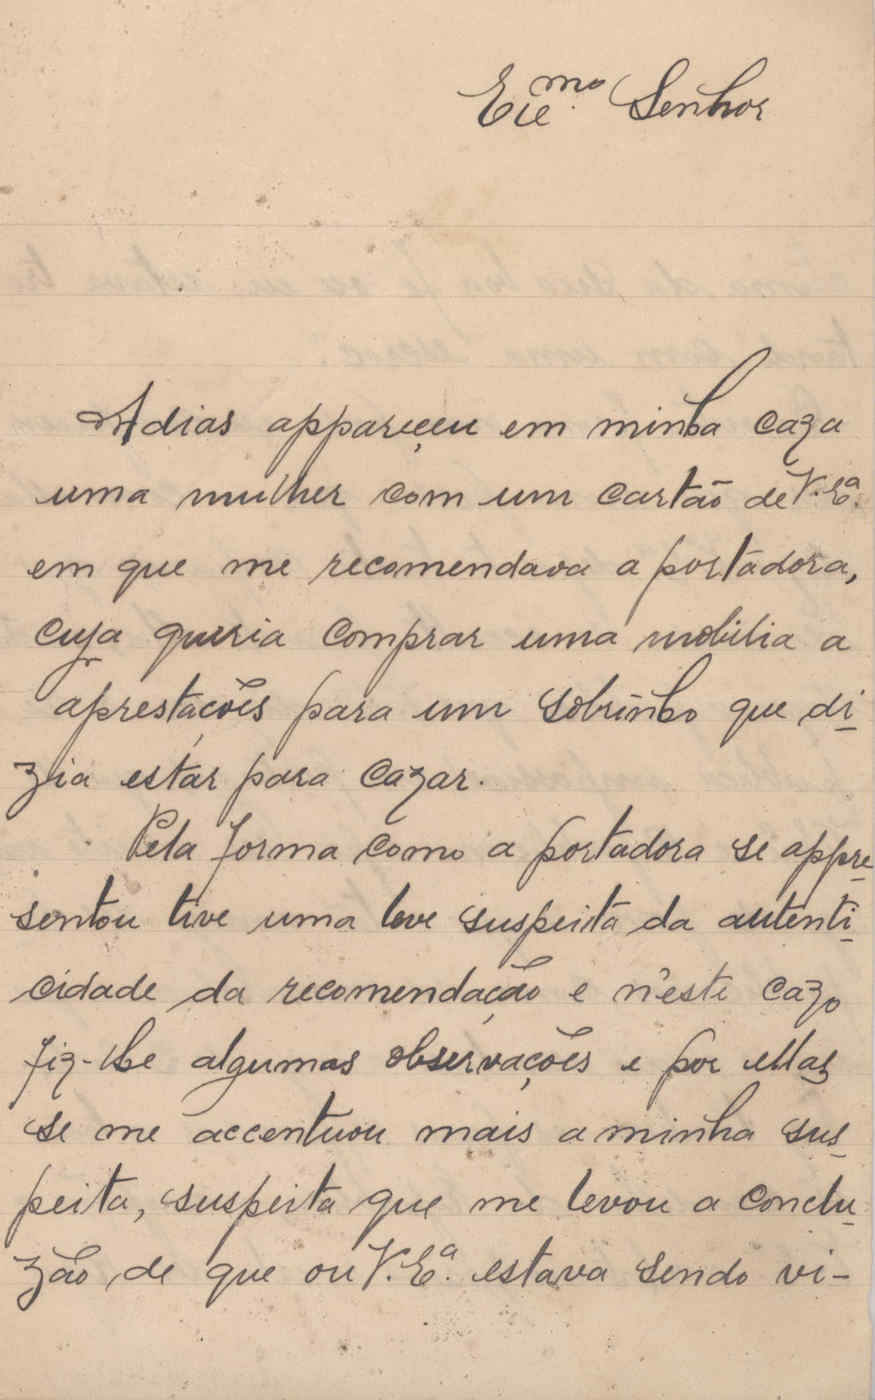 Exc.mo Senhor
Adias appareçeu em minha caza
uma mulher com um cartão de V. Exª.
em que me recomendava a portadora,
cuja queria comprar uma mobilia a
aprestações para um sobrinho que di-
zia estar para cazar.
Pela forma como a portadora se appre-
sentou tive uma leve suspeita da autenti-
cidade da recomendação e n'este cazo
fiz-lhe algumas observações e por ellas
se me accentuou mais a minha sus-
peita, suspeita que me levou a conclu-
zão de que ou V. Exª. estava sendo vi-